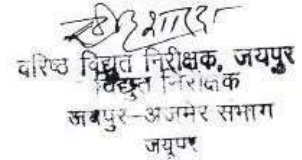 वरिष्ठ विद्युत निरीक्षक, जयपुर
विद्युत निरीक्षक
जयपुर-अजमेर संभाग
जयपुर